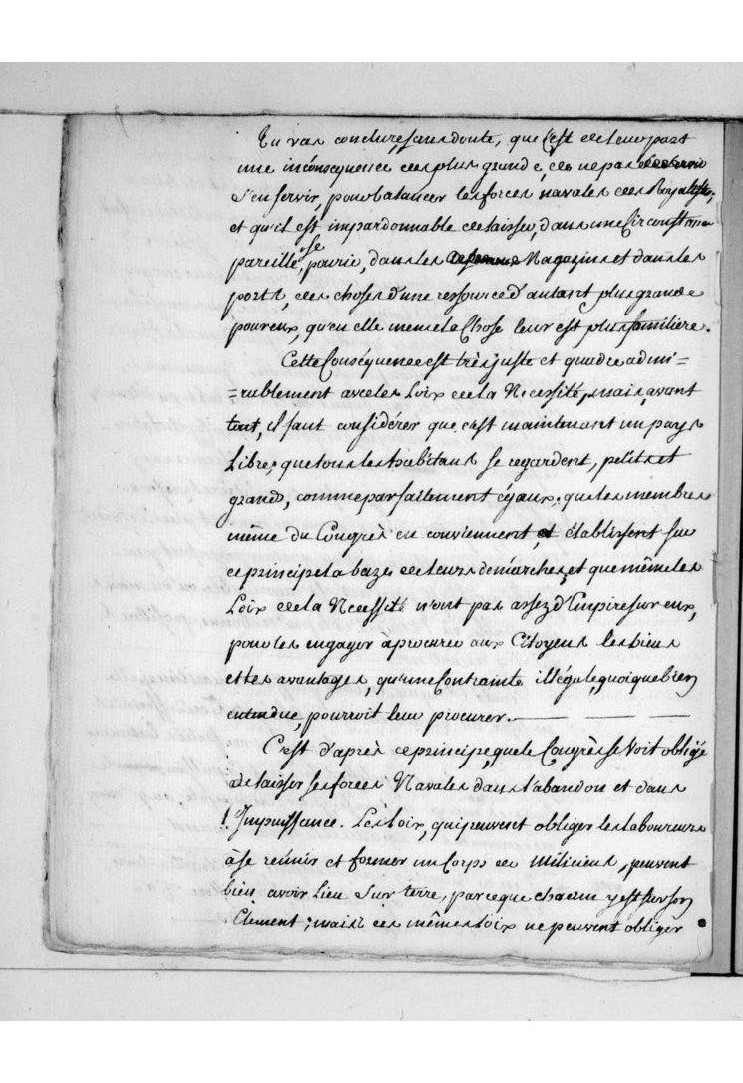 Tu vas conclure, sans doute, que C'est de leur part
une inconsequence des plus grande, de ne pas
s'en servir, pour balancer les forces navales des Royalistes;
et qu'il est impardonnable de laisser, dans une Circonstance
pareille, se pourir, dans les Magazins et dans les
ports, des choses d'une ressource d'autant plus grande
pour eux, qu'en elle meme la Chose leur est plus familière.
Cette Conséquence est très juste et quadre admi=
=rablement avec les Loix de la Necessité, mais, avant
tout, il faut considérer que c'est maintenant un pays
Libre; que tous les habitans se regardent, petits et
grands, comme parfaitement égaux; que les membres
même du Congrès en conviennent et établissent sur
ce principe la baze de leurs demarches, et que même les
Loix de la Necéssité n'ont pas assez d'Empire sur eux,
pour les engager à procurer aux Citoyens les biens
et les avantages, qu'une Contrainte illégale, quoique bien
entendue, pourroit leur procurer. — — —
C'est d'après ce principe, que le Congrès se Voit obligé
de laisser ses forces Navales dans l'abandon et dans
l'Impuissance. Les Loix, qui peuvent obliger les Laboureurs
à se reúnir et former un Corps de Miliciens, peuvent
bien avoir Lieu Sur terre, parceque chacun y est sur son
Element; mais ces mêmes Loix ne peuvent obliger